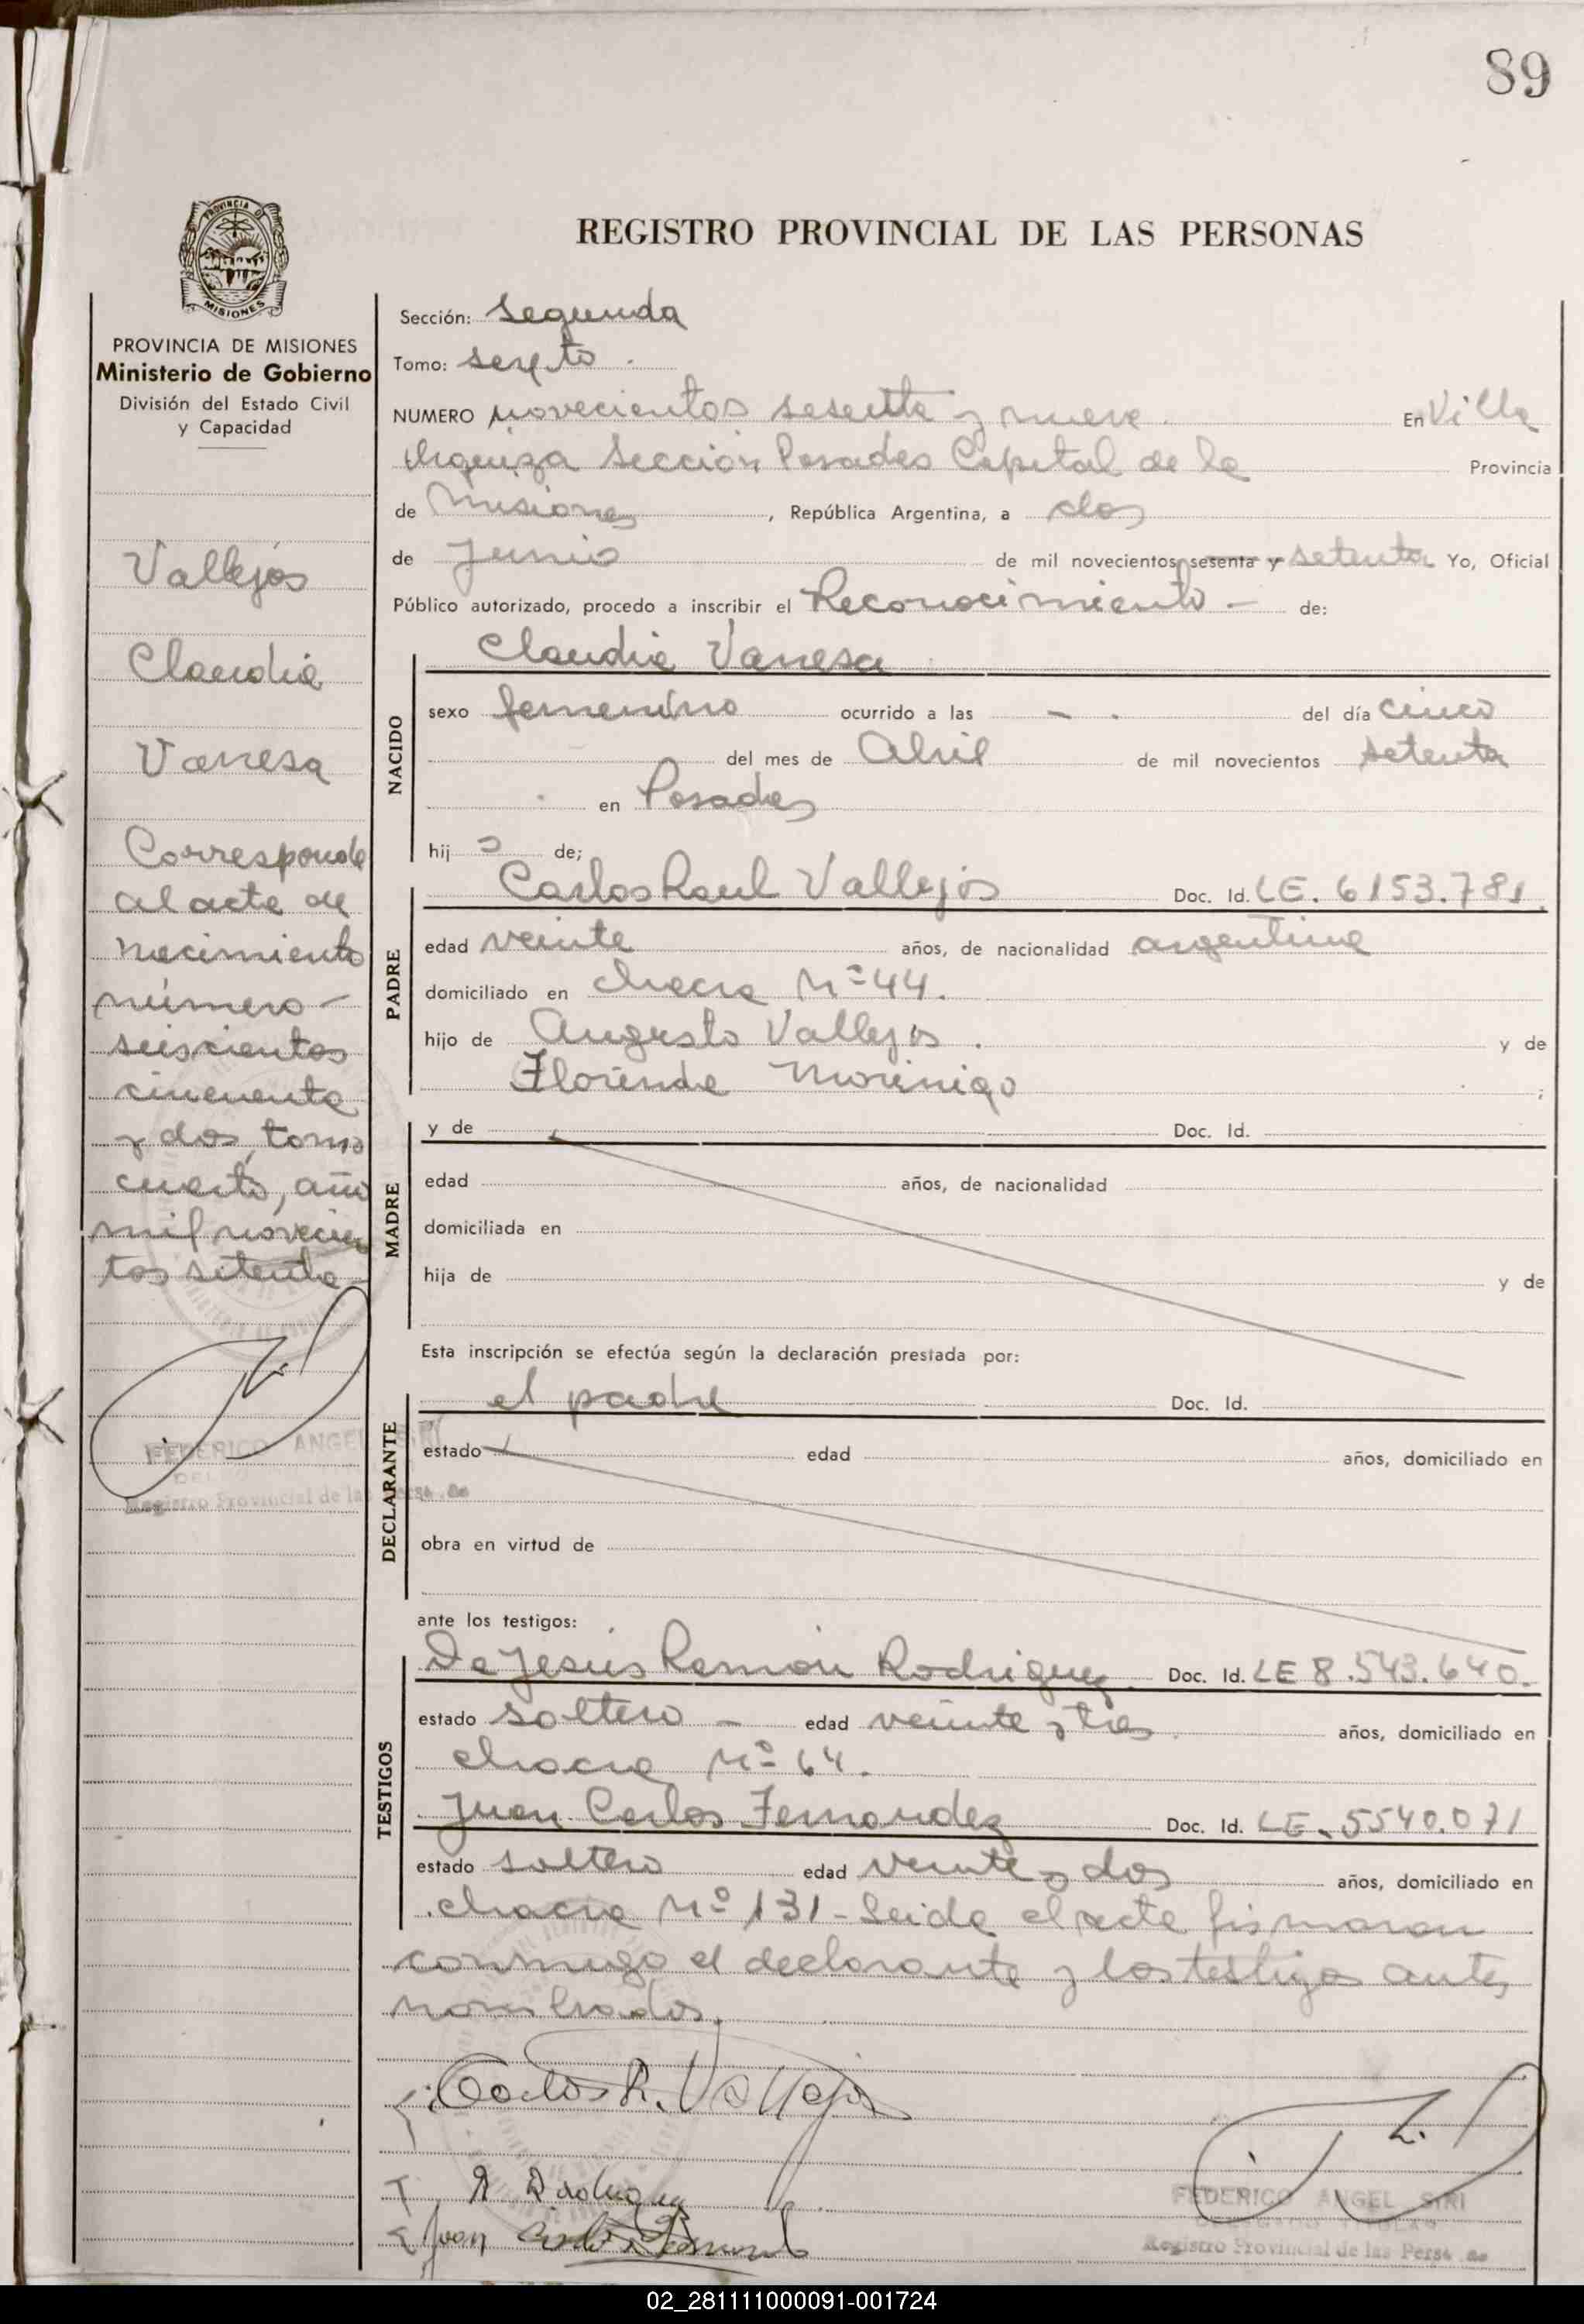 89
PROVINCIA DE
MISIONES
REGISTRO PROVINCIAL DE LAS PERSONAS
PROVINCIA DE MISIONES
Ministerio de Gobierno
División del Estado Civil
y Capacidad
Vallejos
Claudia
Vanesa
Corresponde
al acta de
nacimiento
número -
seiscientos
cincuenta
y dos, tomo
cuarto, año
mil novecien
tos setenta -
FEDERICO ANGEL SIRI
Registro Provincial de las Pers
Sección: Segunda
Tomo: sexto .
NUMERO novecientos sesenta y nueve. En Villa
Urquiza Sección Posadas Capital de la Provincia
de Misiones , República Argentina, a dos
de Junio de mil novecientos sesenta y setenta Yo, Oficial
Público autorizado, procedo a inscribir el Reconocimiento - de:
NACIDO
Claudia Vanesa
sexo femenino ocurrido a las - . del día cinco
del mes de Abril de mil novecientos setenta
en Posadas
hij a de;
PADRE
Carlos Raul Vallejos Doc. Id. LE. 6153.781.
edad veinte años, de nacionalidad argentina
domiciliado en chacra Nº 44.
hijo de Augusto Vallejos . y de
Morinigo ;
MADRE
y de Doc. Id.
edad años, de nacionalidad
domiciliada en
hija de y de
Esta inscripción se efectúa según la declaración prestada por:
DECLARANTE
el padre Doc. Id.
estado edad años, domiciliado en
obra en virtud de
ante los testigos:
TESTIGOS
De Jesús Ramón Rodriguez Doc. Id. LE 8.543.640.
estado soltero - edad veinte y tres años, domiciliado en
chacra Nº 64.
Juan Carlos Fernandez Doc. Id. LE. 5540.071
estado soltero edad veinte y dos años, domiciliado en
chacra Nº 131 - Leida el acta firmaron
conmigo el declarante y los testigos antes
nombrados.
Carlos R. Vallejos
R Rodriguez
Juan Carlos
FEDERICO ANGEL SIRI
DELEGADO TITULAR
Registro Provincial de las Pers
02_281111000091-001724